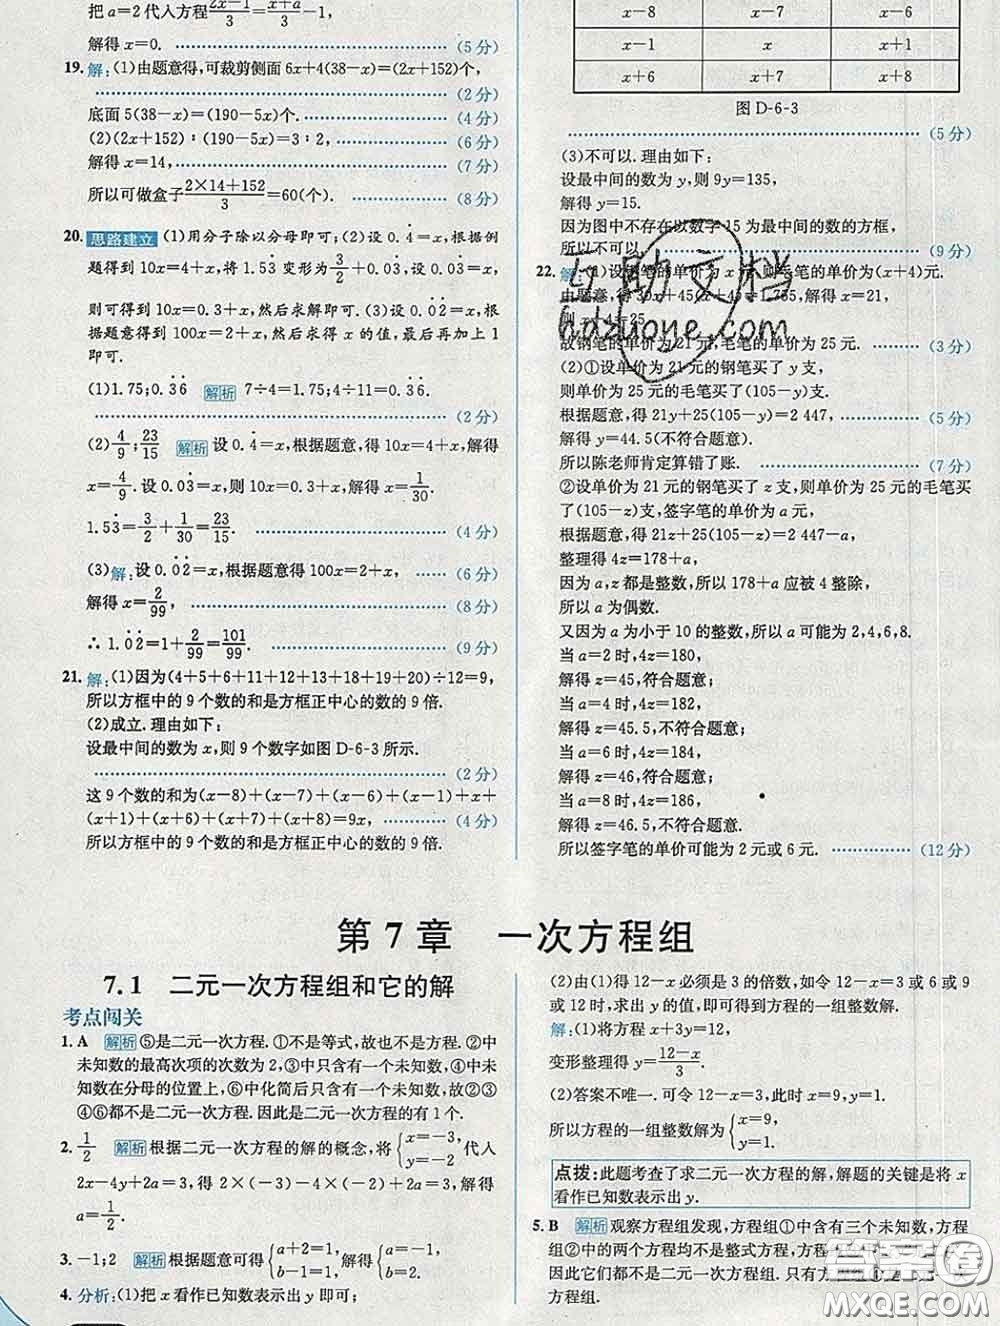 把 a=2 代入方程(2x-1)/3=(x+a)/3-1,
解得 x=0. (5 分)
19. 解:(1)由题意得,可裁剪侧面 6x+4(38-x)=(2x+152)个,
(2 分)
底面 5(38-x)=(190-5x)个. (4 分)
(2)(2x+152):(190-5x)=3:2, (6 分)
解得 x=14, (7 分)
所以可做盒子(2×14+152)/3=60(个). (8 分)
20. 思路建立 (1)用分子除以分母即可;(2)设 0.4̇=x,根据例
题得到 10x=4+x,将 1.53̇ 变形为 3/2+0.03̇,设 0.03̇=x,
则可得到 10x=0.3̇+x,然后求解即可.(3)设 0.0̇2̇=x,根据
题意得到 100x=2+x,然后求得 x 的值,最后再加上 1
即可.
(1)1.75;0.3̇6̇ 解析 7÷4=1.75;4÷11=0.3̇6̇.
(2 分)
(2)4/9;23/15 解析 设 0.4̇=x,根据题意,得 10x=4+x,解得
x=4/9.设 0.03̇=x,则 10x=0.3̇+x,解得 x=1/30.
1.53̇=3/2+1/30=23/15. (4 分)
(3)解:设 0.0̇2̇=x,根据题意得 100x=2+x, (6 分)
解得 x=2/99, (8 分)
∴ 1.0̇2̇=1+2/99=101/99. (9 分)
21. 解:(1)因为(4+5+6+11+12+13+18+19+20)÷12=9,
所以方框中的 9 个数的和是方框正中心的数的 9 倍.
(2)成立.理由如下:
设最中间的数为 x,则 9 个数字如图 D-6-3 所示.
(2 分)
这 9 个数的和为(x-8)+(x-7)+(x-6)+(x-1)+x+
(x+1)+(x+6)+(x+7)+(x+8)=9x, (4 分)
所以方框中的 9 个数的和是方框正中心的数的 9 倍.
x-8 x-7 x-6
x-1 x x+1
x+6 x+7 x+8
图 D-6-3
(5 分)
(3)不可以.理由如下:
设最中间的数为 y,则 9y=135,
解得 y=15.
因为图中不存在以数字 15 为最中间的数的方框,
所以不可以. (9 分)
22. 解:(1)设钢笔的单价为 x 元,则毛笔的单价为(x+4)元.
由题意,得 30x+45(x+4)=1 755,解得 x=21,
则 x+4=25.
故钢笔的单价为 21 元,毛笔的单价为 25 元. (3 分)
(2)①设单价为 21 元的钢笔买了 y 支,
则单价为 25 元的毛笔买了(105-y)支.
根据题意,得 21y+25(105-y)=2 447, (5 分)
解得 y=44.5(不符合题意).
所以陈老师肯定算错了账. (7 分)
②设单价为 21 元的钢笔买了 z 支,则单价为 25 元的毛笔买
了(105-z)支,签字笔的单价为 a 元,
根据题意,得 21z+25(105-z)=2 447-a,
整理得 4z=178+a,
因为 a,z 都是整数,所以 178+a 应被 4 整除,
所以 a 为偶数.
又因为 a 为小于 10 的整数,所以 a 可能为 2,4,6,8.
当 a=2 时,4z=180,
解得 z=45,符合题意;
当 a=4 时,4z=182,
解得 z=45.5,不符合题意;
当 a=6 时,4z=184,
解得 z=46,符合题意;
当 a=8 时,4z=186,
解得 z=46.5,不符合题意.
所以签字笔的单价可能为 2 元或 6 元. (12 分)
互助文档
hdzuoye.com
第 7 章 一次方程组
7.1 二元一次方程组和它的解
考点闯关
1. A 解析 ⑤是二元一次方程.①不是等式,故也不是方程.②中
未知数的最高次项的次数为 2,③中只含有一个未知数,④中未
知数在分母的位置上,⑥中化简后只含有一个未知数,故②③
④⑥都不是二元一次方程.因此是二元一次方程的有 1 个.
2. 1/2 解析 根据二元一次方程的解的概念,将{x=-3, y=-2 代入
2x-4y+2a=3,得 2×(-3)-4×(-2)+2a=3,解得
a=1/2.
3. -1;2 解析 根据题意可得{a+2=1, b-1=1,解得{a=-1, b=2.
4. 分析:(1)把 x 看作已知数表示出 y 即可;
(2)由(1)得 12-x 必须是 3 的倍数,如令 12-x=3 或 6 或 9
或 12 时,求出 y 的值,即可得到方程的一组整数解.
解:(1)将方程 x+3y=12,
变形整理得 y=(12-x)/3.
(2)答案不唯一.可令 12-x=3,此时 x=9,y=1.
所以方程的一组整数解为{x=9, y=1.
点拨:此题考查了求二元一次方程的解,解题的关键是将 x
看作已知数表示出 y.
5. B 解析 观察方程组发现,方程组①中含有三个未知数,方程
组②中的两个方程均不是整式方程,方程组
因此它们都不是二元一次方程组.只有方程组
方程组.
答案圈
MXQE.COM